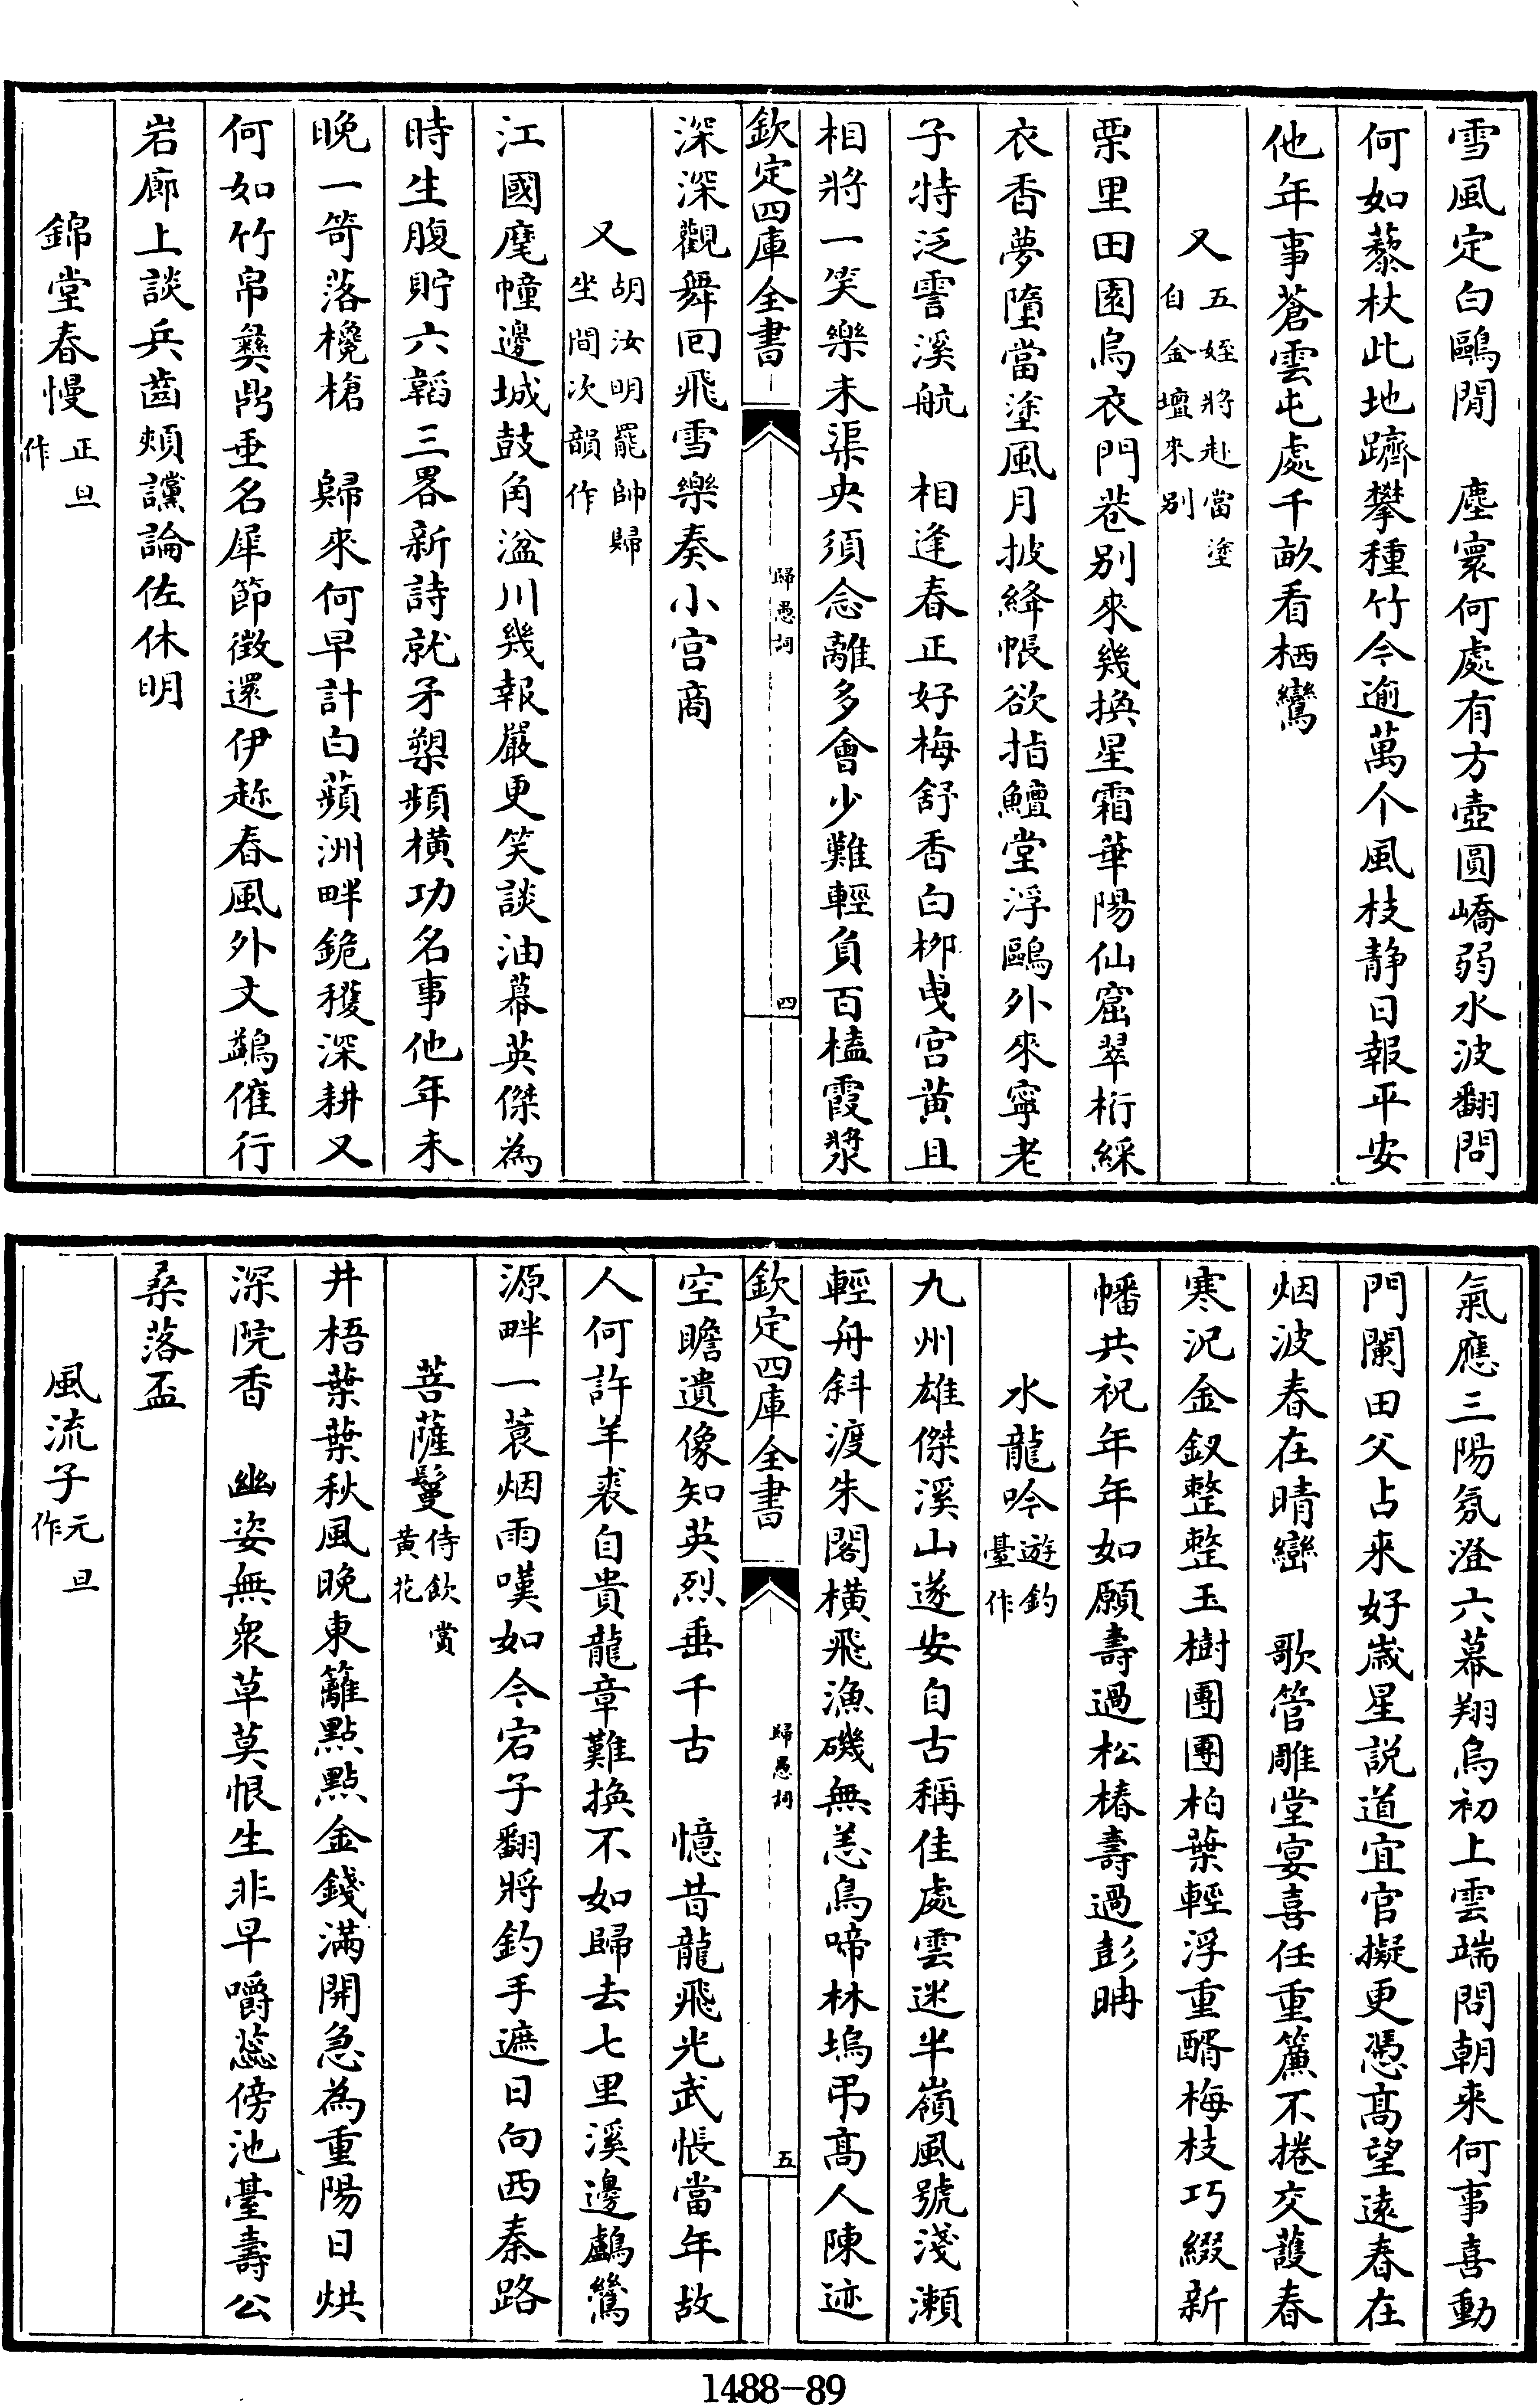 雪風定白鷗閒　塵寰何處有方壺圓嶠弱水波翻問
何如藜杖此地躋攀種竹今逾萬个風枝静日報平安
他年事蒼雲屯處千畝看栖鸞
又五姪將赴當塗自金壇來別
栗里田園烏衣門巷別來幾換星霜華陽仙窟翠桁綵
衣香夢墮當塗風月披絳帳欲指鱣堂浮鷗外來寧老
子特泛霅溪航　相逢春正好梅舒香白栁曵宫黄且
相將一笑樂未渠央須念離多會少難輕負百榼霞漿
欽定四庫全書
歸愚詞
四
深深觀舞囘飛雪樂奏小宫商
又胡汝明罷帥歸坐間次韻作
江國麾幢邊城鼓角湓川幾報嚴更笑談油幕英傑為
時生腹貯六韜三畧新詩就矛槊頻横功名事他年未
晚一笴落欃槍　歸來何早計白蘋洲畔銚穫深耕又
何如竹帛彝鼎垂名犀節徴還伊邇春風外文鷁催行
岩廊上談兵齒頰讜論佐休明
錦堂春慢正旦作
氣應三陽氛澄六幕翔烏初上雲端問朝来何事喜動
門闌田父占来好嵗星説道宜官擬更憑髙望逺春在
烟波春在晴巒　歌管雕堂宴喜任重簾不捲交䕶春
寒況金釵整整玉樹團團柏葉輕浮重醑梅枝巧綴新
幡共祝年年如願壽過松椿壽過彭聃
水龍吟遊釣臺作
九州雄傑溪山遂安自古稱佳處雲迷半嶺風號淺瀬
輕舟斜渡朱閣横飛漁磯無恙鳥啼林塢弔髙人陳迹
欽定四庫全書
歸愚詞
五
空瞻遺像知英烈垂千古　憶昔龍飛光武悵當年故
人何許羊裘自貴龍章難換不如歸去七里溪邊鸕鶿
源畔一蓑烟雨嘆如今宕子翻將釣手遮日向西秦路
菩薩鬘侍飲賞黄花
井梧葉葉秋風晚東籬點點金錢滿開急為重陽日烘
深院香　幽姿無衆草莫恨生非早嚼蕊傍池臺壽公
桑落盃
風流子元旦作
1488—89